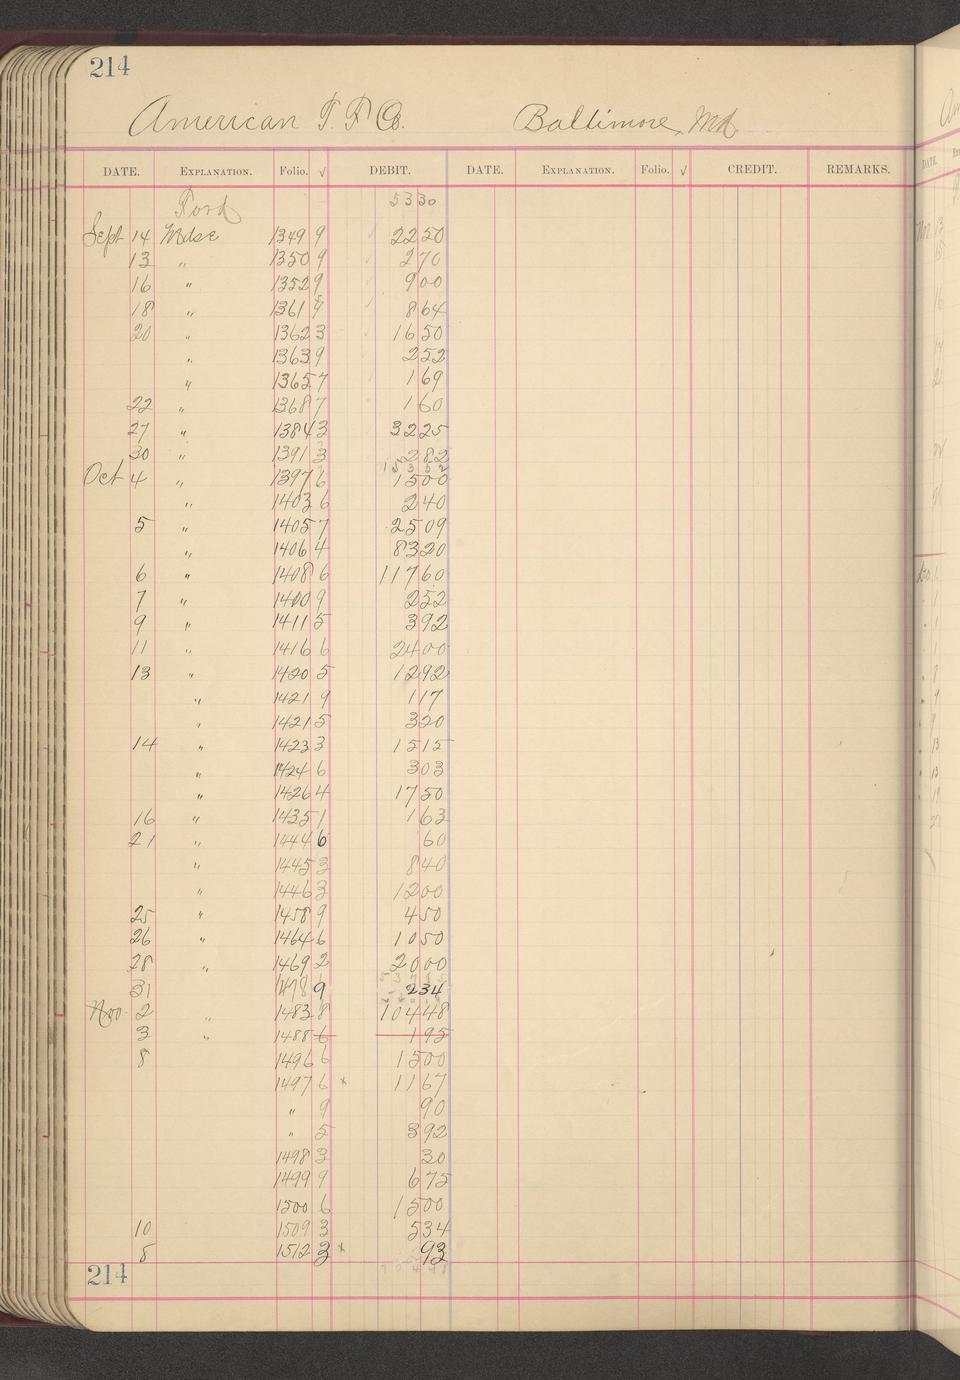 214
American T. F. Co. Baltimore, Md
DATE. EXPLANATION. Folio. √ DEBIT. DATE. EXPLANATION. Folio. √ CREDIT. REMARKS.
Ford 5330
Sept 14 Mdse 1349 9 2250
13 " 1350 9 270
16 " 1352 9 900
18 " 1361 864
20 " 1362 3 1650
" 1363 9 252
" 1365 7 169
22 " 1368 7 160
27 " 1384 3 3225
30 " 1391 3 282
Oct 4 " 1397 6 1500
" 1403 6 240
5 " 1405 7 2509
" 1406 4 8320
6 " 1408 6 11760
7 " 1400 9 252
9 " 1411 5 392
11 " 1416 6 2400
13 " 1420 5 1292
" 1421 9 117
" 1421 5 320
14 " 1423 3 1515
" 1424 6 303
" 1426 4 1750
16 " 1435 1 163
21 " 1444 6 60
" 1445 3 840
" 1446 3 1200
25 " 1458 9 450
26 " 1464 6 1050
28 " 1469 2 2000
31 1478 9 234
Nov 2 " 1483 8 10448
3 " 1488 6 195
8 1496 6 1500
1497 6 x 1167
" 9 90
" 5 392
1498 3 30
1499 9 675
1500 6 1500
10 1509 3 534
8 1512 3 x 93
214